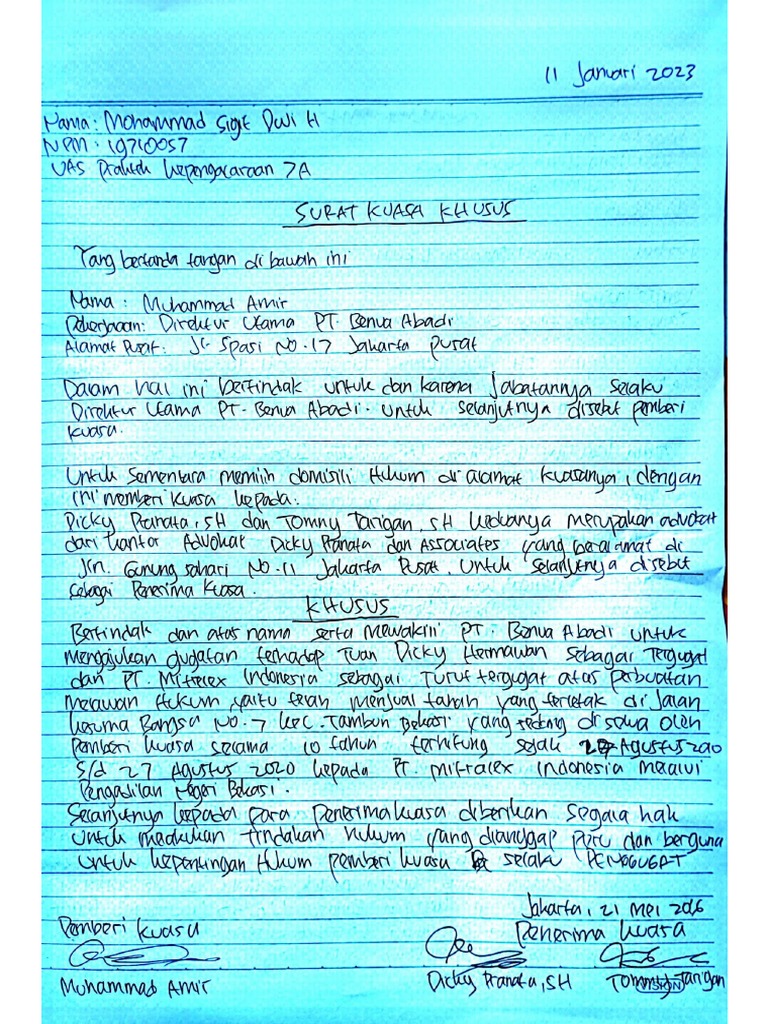 11 Januari 2023
Nama : Mohammad Sigit Dwi H
NPM : 19710057
UAS Praktek Kepengacaraan 7A
SURAT KUASA KHUSUS
Yang bertanda tangan di bawah ini
Nama : Muhammad Amir
Pekerjaan : Direktur Utama PT. Benua Abadi
Alamat Pusat : Jl. Spasi No. 17 Jakarta Pusat
Dalam hal ini bertindak untuk dan karena Jabatannya selaku
Direktur Utama PT. Benua Abadi. Untuk selanjutnya disebut pemberi
kuasa.
Untuk sementara memilih domisili Hukum di alamat kuasanya, dengan
ini memberi kuasa kepada :
Dicky Pranata, SH dan Tommy Tarigan, SH keduanya merupakan advokat
dari kantor Advokat Dicky Pranata dan Associates yang beralamat di
Jln. Gunung Sahari No. 11 Jakarta Pusat. Untuk selanjutnya disebut
sebagai Penerima Kuasa.
KHUSUS
Bertindak dan atas nama serta Mewakili PT. Benua Abadi untuk
Mengajukan gugatan terhadap Tuan Dicky Hermawan sebagai Tergugat
dan PT. Mitralex Indonesia sebagai Turut tergugat atas perbuatan
Melawan Hukum yaitu telah menjual tanah yang terletak di Jalan
Kesuma Bangsa No. 7 Kec. Tambun Bekasi yang sedang di sewa oleh
Pemberi kuasa selama 10 tahun terhitung sejak 27 Agustus 2010
s/d 27 Agustus 2020 kepada PT. Mitralex Indonesia melalui
Pengadilan Negeri Bekasi.
Selanjutnya kepada para penerima kuasa diberikan segala hak
untuk melakukan tindakan hukum yang dianggap perlu dan berguna
untuk kepentingan Hukum pemberi kuasa selaku PENGGUGAT
Jakarta, 21 Mei 2016
Pemberi Kuasa Penerima Kuasa
Muhammad Amir Dicky Pranata, SH Tommy Tarigan